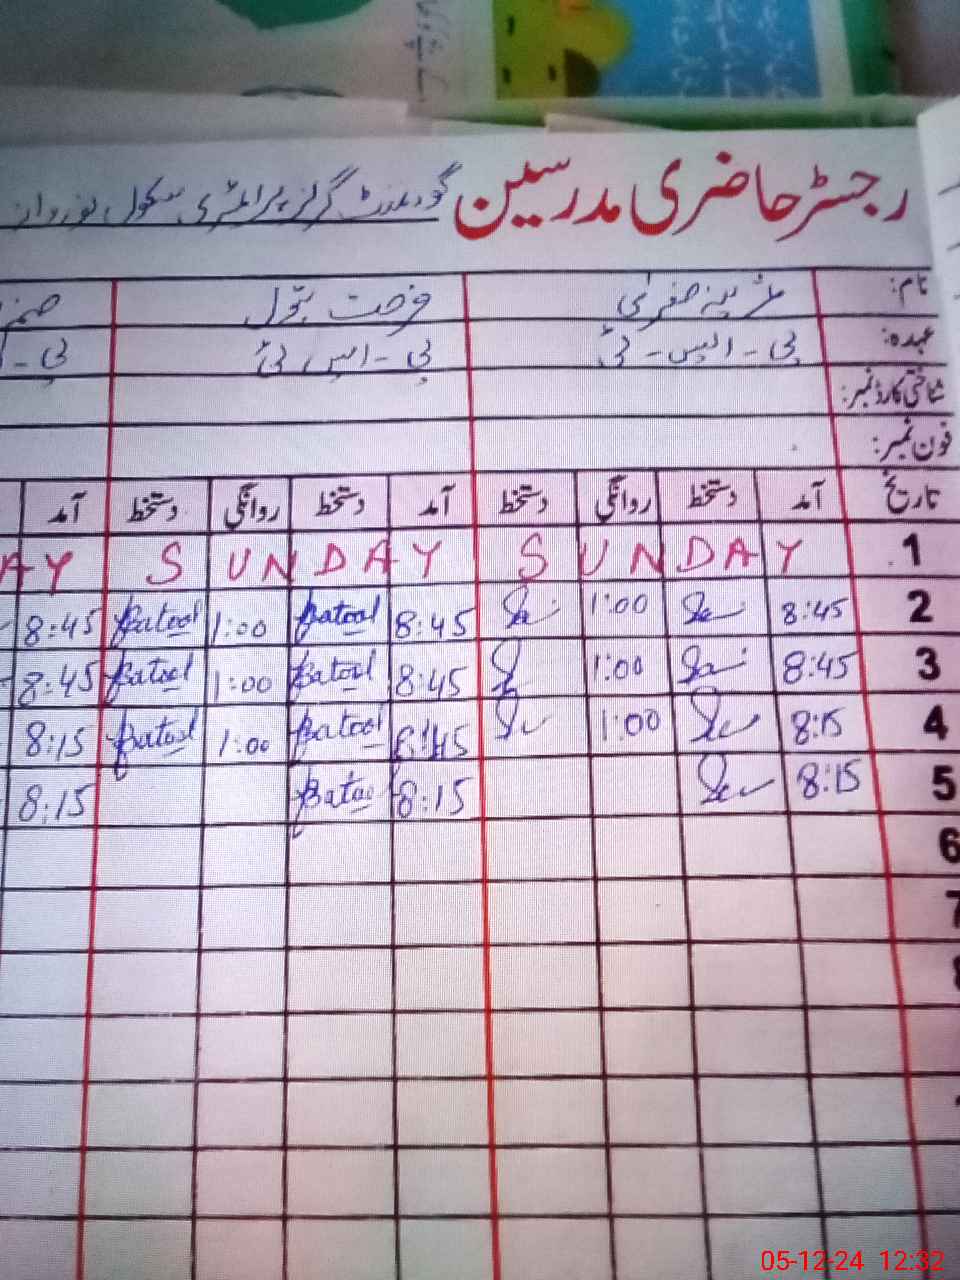 رجسٹر حاضری مدرسین گورنمنٹ گرلز پرائمری سکول
نام: صغریٰ فرحت بتول
عہدہ: پی - ایس - ٹی پی - ایس ٹی پی -
شناختی کارڈ نمبر:
فون نمبر:
تاریخ آمد دستخط روانگی دستخط آمد دستخط روانگی دستخط آمد
1 S U N D A Y S U N D A Y A Y
2 8:45 1:00 8:45 Batool 1:00 Batool 8:45
3 8:45 1:00 8:45 Batool 1:00 Batool 8:45
4 8:15 1:00 Batool 1:00 Batool 8:15
5 8:15 8:15 Batool 8:15
6
7
8
05-12-24 12:32